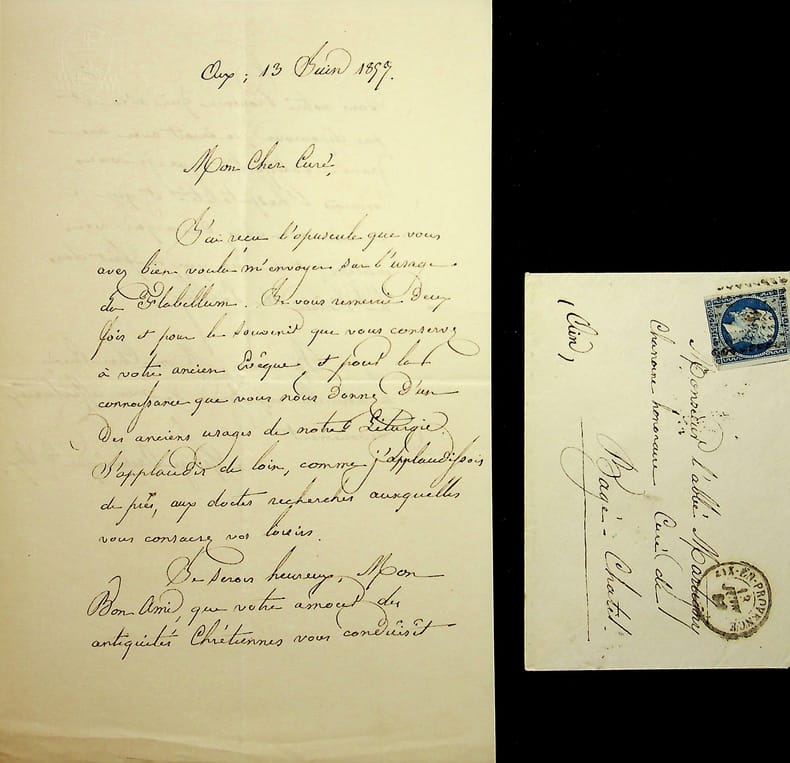 Aix, 13 Juin 1857.
Mon Cher Curé,
J'ai reçu l'opuscule que vous
avez bien voulu m'envoyer sur l'usage
du Flabellum. Je vous remercie deux
fois et pour le souvenir que vous conservez
à votre ancien Evêque, et pour la
connaissance que vous nous donnez d'un
des anciens usages de notre Liturgie.
J'applaudis de loin, comme j'applaudissois
de près, aux doctes recherches auxquelles
vous consacrez vos loisirs.
Je serois heureux, Mon
Bon Ami, que votre amour des
antiquités Chrétiennes vous conduisît
Monsieur l'abbé
Chanoine honoraire Curé de
Bagé-Chatel.
(Ain)
AIX-EN-PROVENCE
13
JUIN